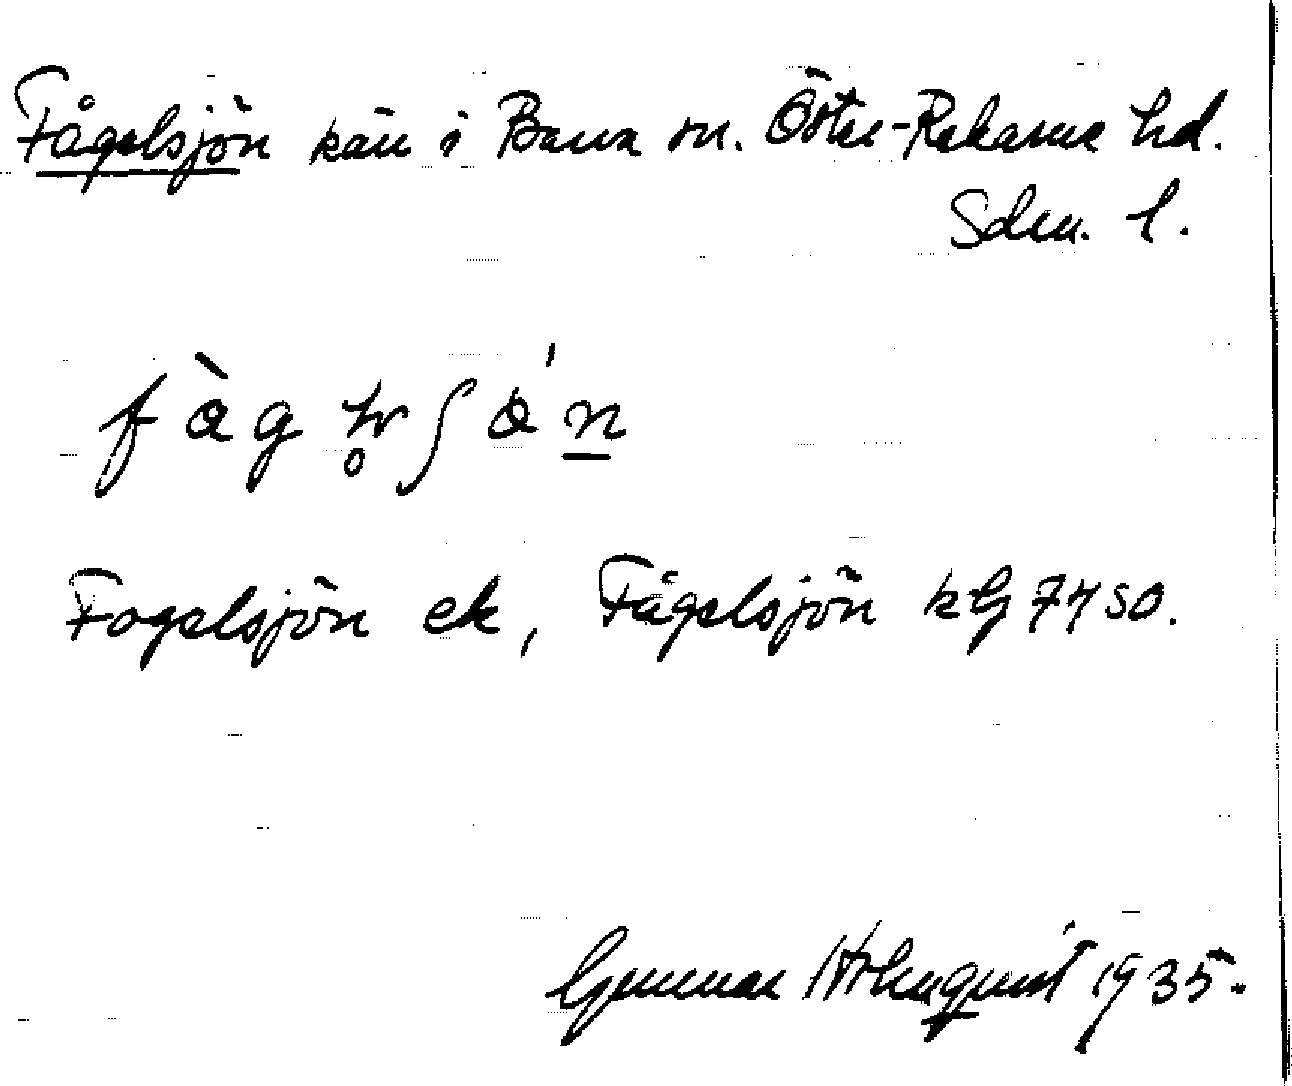 Fågelsjön kärr i Barva sn. Öster-Rekarne hd.
Sdm. l.
Fogelsjön ek, Fågelsjön kG 7450.
Gunnar Holmquist 1935.